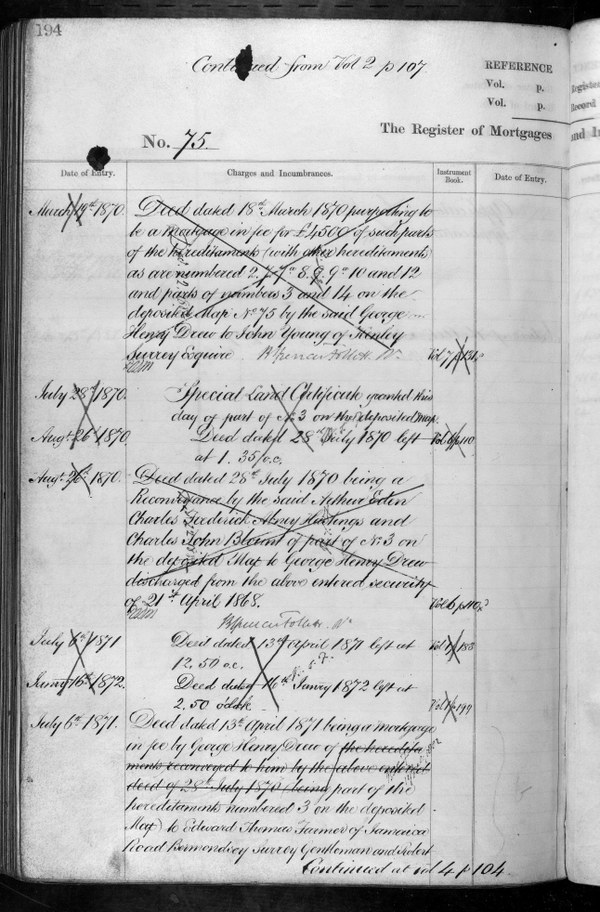 194
Continued from Vol 2 p 107
REFERENCE
Vol. p.
Vol. p.
No. 75.
The Register of Mortgages and In
Registe
Record
Date of Entry.
Charges and Incumbrances.
Instrument Book.
Date of Entry.
March 19th 1870.
Deed dated 18th March 1870 purporting to
be a mortgage in fee for £4500 of such parts
of the hereditaments (with other hereditaments
as are numbered 2. 7. 7a 8. 9. 9a 10 and 12
and parts of numbers 3 and 14 on the
deposited Map No 75 by the said George
Henry Drew to John Young of Kenley
Surrey Esquire
B Spencer Follett
Vol 7 p
July 28th 1870.
Special Land Certificate granted this
day of part of No 3 on the deposited map.
Augt 26th 1870
Deed dated 28th July 1870 left
at 1. 35/o.c.
Vol 6 p 110
Augt 26th 1870.
Deed dated 28th July 1870 being a
Reconveyance by the said Arthur Eden
Charles Frederick Abney Hastings and
Charles John Blount of part of No 3 on
the deposited Map to George Henry Drew
discharged from the above entered security
of 21st April 1868.
Vol 6 p 110
B Spencer Follett
July 6th 1871
Deed dated 13th April 1871 left at
12.50 o.c.
Vol
Janry 16th 1872.
Deed dated 16th Janry 1872 left at
2. 50 o'clock
Vol
July 6th 1871.
Deed dated 13th April 1871 being a mortgage
in fee by George Henry Drew of the heredita
ments reconveyed to him by the above entered
deed of 28th July 1870 (being part of the
hereditaments numbered 3 on the deposited
Map) to Edward Thomas Farmer of Jamaica
Road Bermondsey Surrey Gentleman and Robert
Continued at vol 4 p 104.